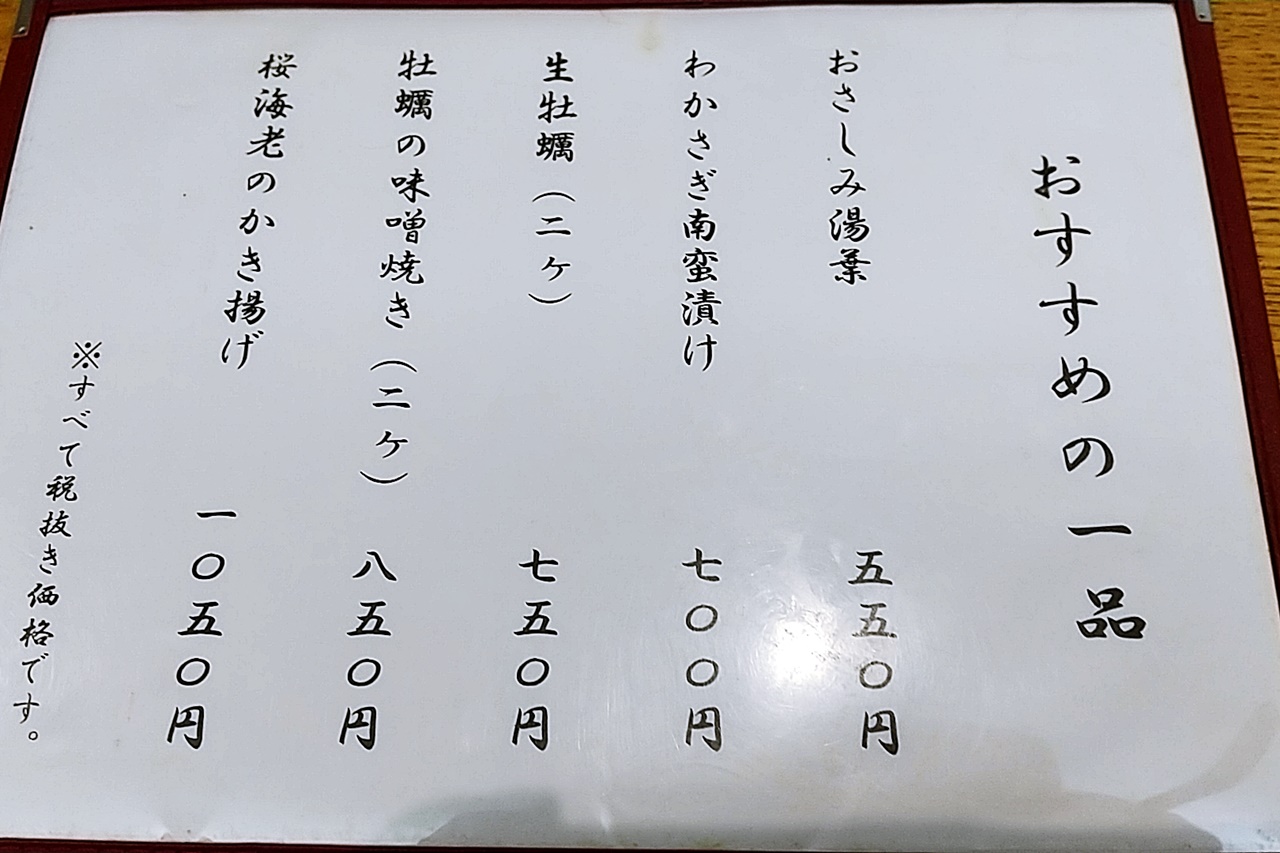 おすすめの一品
おさしみ湯葉 五五〇円
わかさぎ南蛮漬け 七〇〇円
生牡蠣(二ヶ) 七五〇円
牡蠣の味噌焼き(二ヶ) 八五〇円
桜海老のかき揚げ 一〇五〇円
※すべて税抜き価格です。